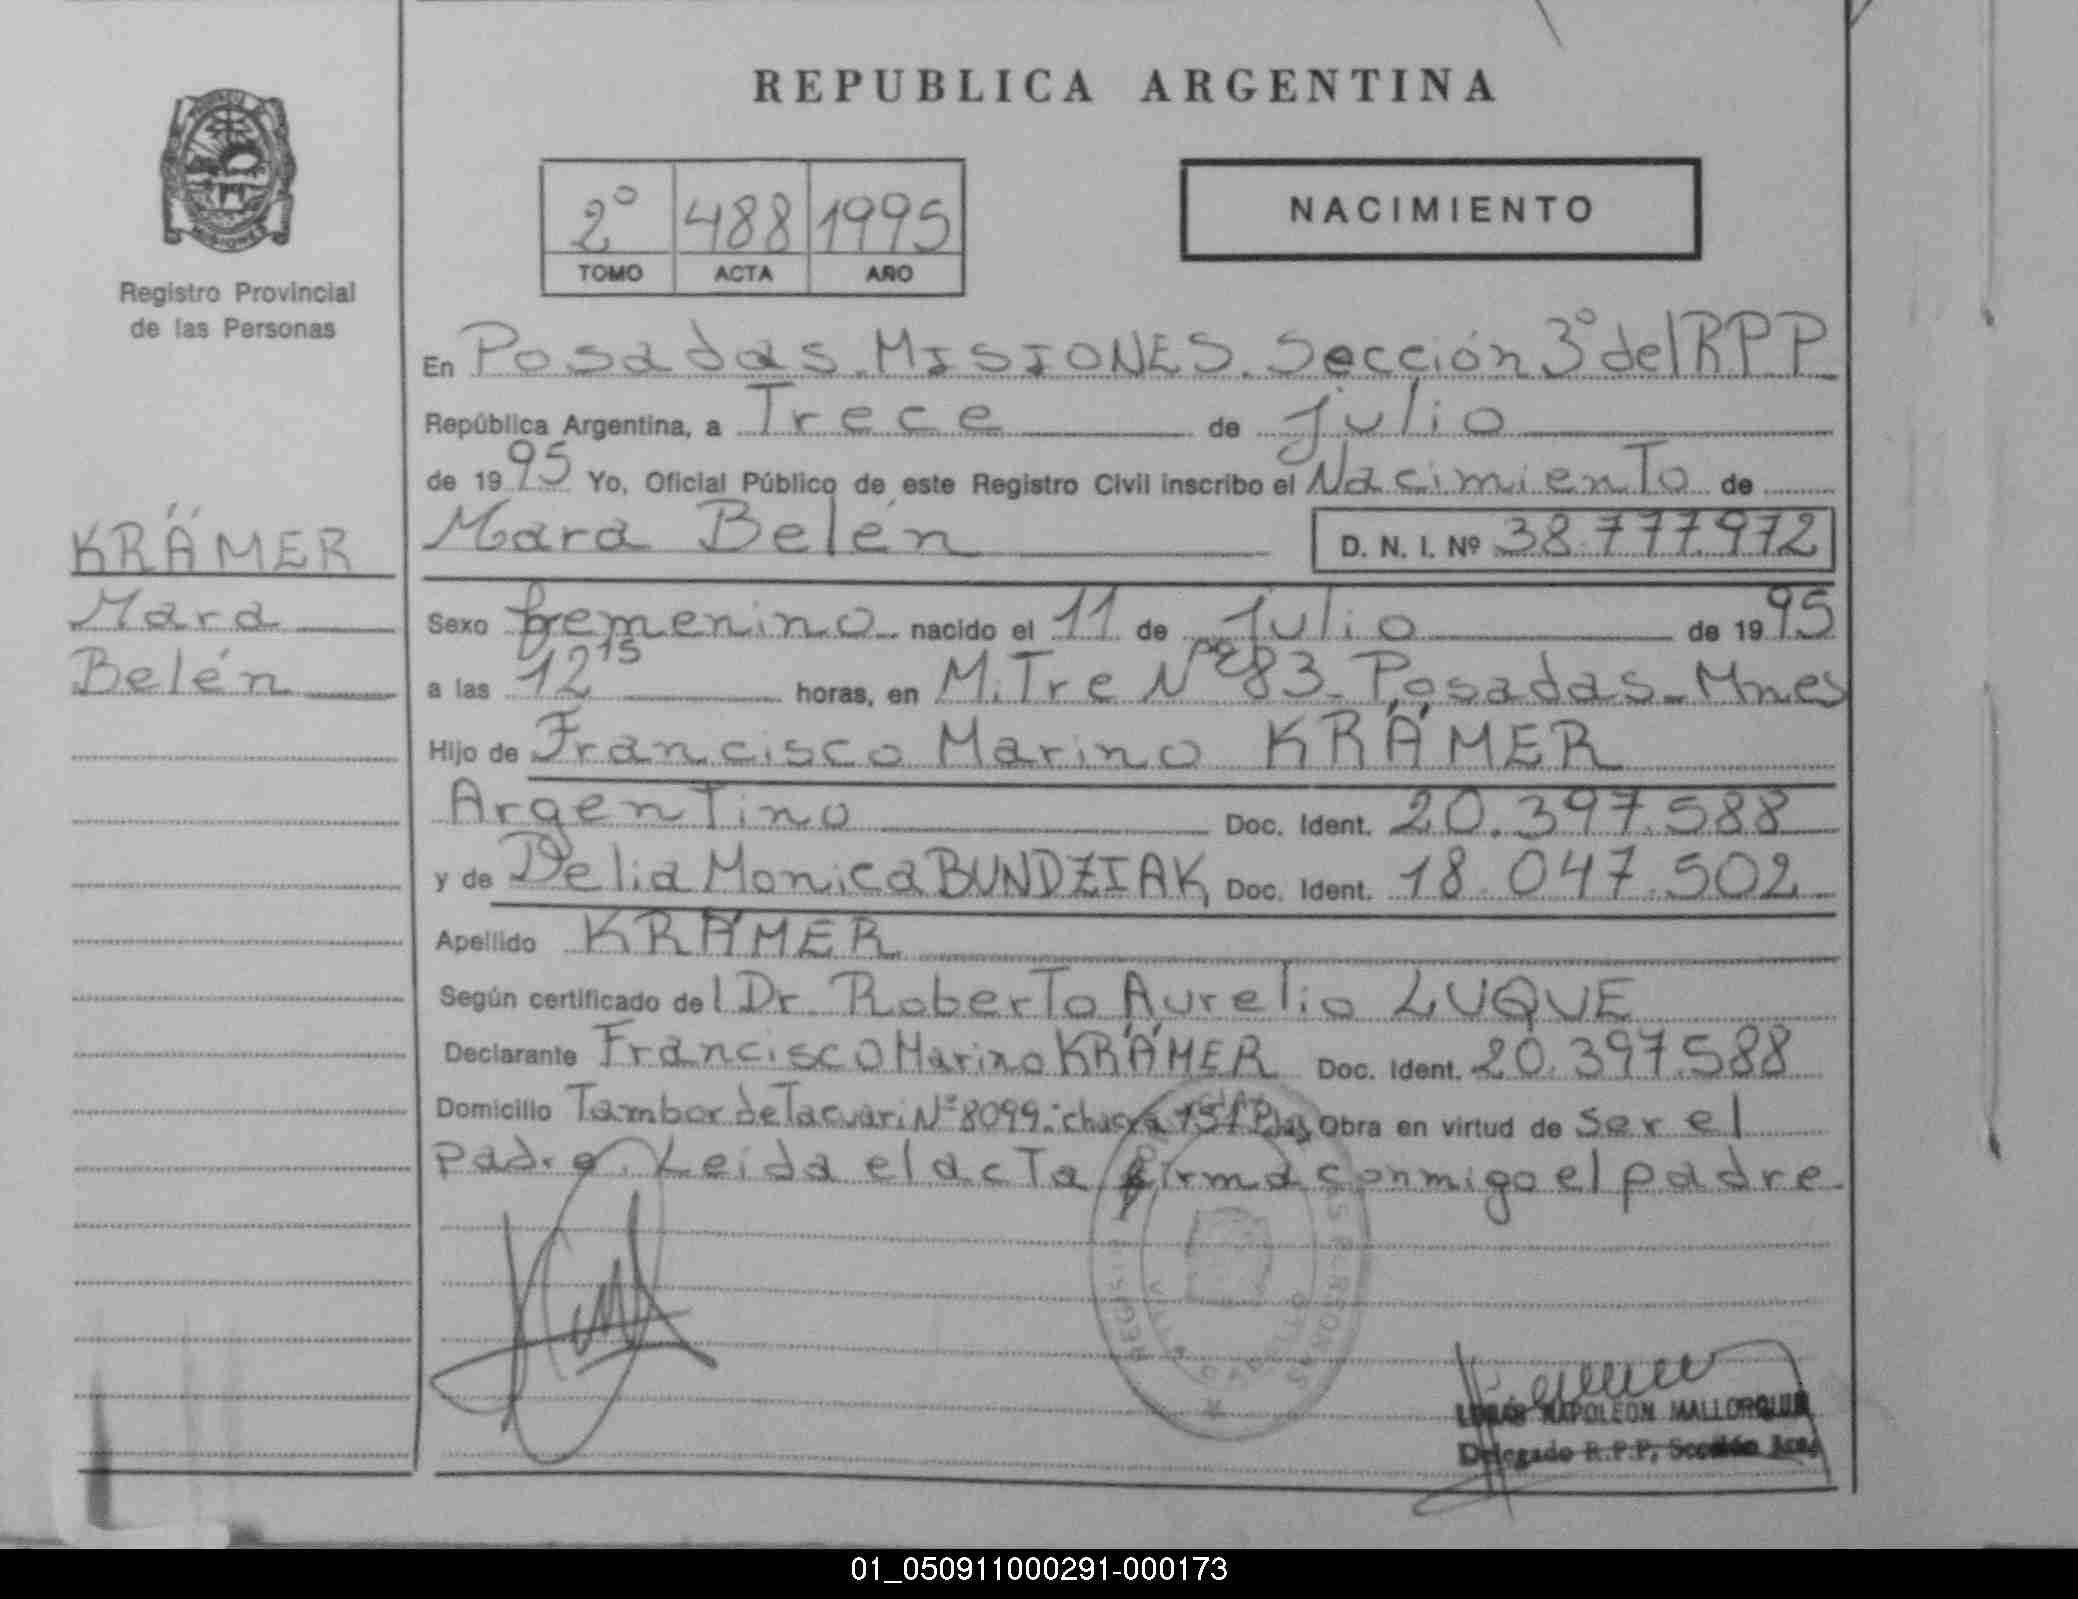 REPUBLICA ARGENTINA
2° 488 1995
TOMO ACTA AÑO
NACIMIENTO
MISIONES
Registro Provincial
de las Personas
KRÄMER
Mara
Belén
En Posadas. MISIONES. Sección 3° del RPP
República Argentina, a Trece de julio
de 1995 Yo, Oficial Público de este Registro Civil inscribo el Nacimiento de
Mara Belén D. N. I. Nº 38.777.972
Sexo femenino nacido el 11 de Julio de 1995
a las 12 15 horas, en Mitre Nº 283 - Posadas - Mnes
Hijo de Francisco Marino KRÄMER
Argentino Doc. Ident. 20.397.588
y de Delia Monica BUNDZIAK, Doc. Ident. 18.047.502
Apellido KRÄMER
Según certificado del Dr. Roberto Aurelio LUQUE
Declarante Francisco Marino KRÄMER Doc. Ident. 20.397.588
Domicilio Tambor de Tacuari Nº 8099. chacra 151 Obra en virtud de ser el
padre. Leida el acta firma conmigo el padre.
NAPOLEON MALLORQUIN
Delegado R.P.P, Sección 3ra.
01_050911000291-000173